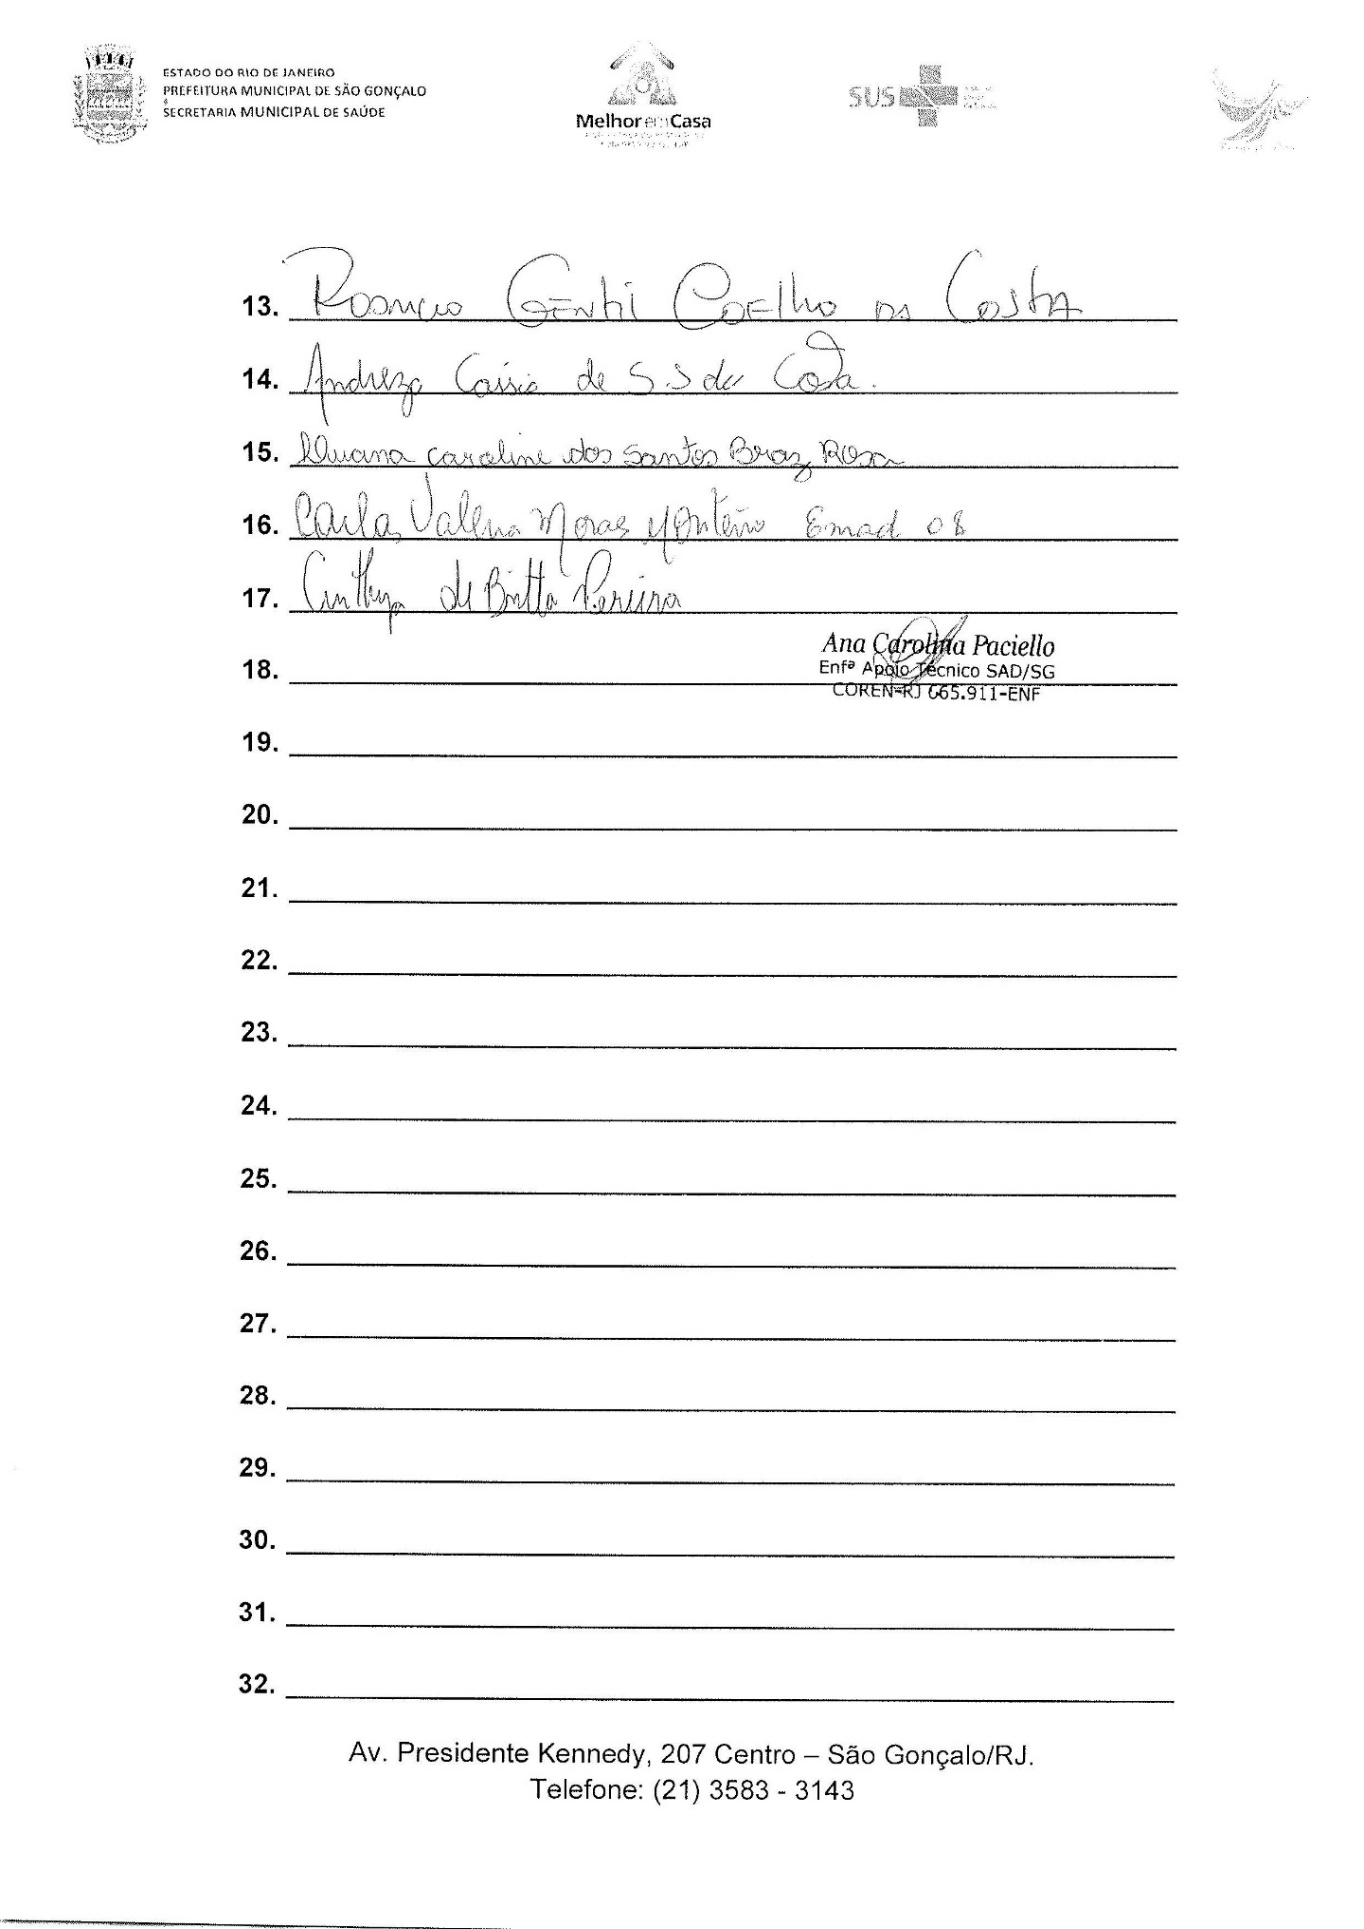 ESTADO DO RIO DE JANEIRO
PREFEITURA MUNICIPAL DE SÃO GONÇALO
SECRETARIA MUNICIPAL DE SAÚDE
Melhor em Casa
SUS
13. Gentil Coelho da Costa
14. Andreza Cassia de S S da Costa.
15. Caroline dos Santos Braz Rosa
16. Carla Moraes Monteiro Emad 08
17. Cinthya de Britto Pereira
Ana Carolina Paciello
Enfª Apoio Técnico SAD/SG
18.
COREN-RJ 665.911-ENF
19.
20.
21.
22.
23.
24.
25.
26.
27.
28.
29.
30.
31.
32.
Av. Presidente Kennedy, 207 Centro – São Gonçalo/RJ.
Telefone: (21) 3583 - 3143